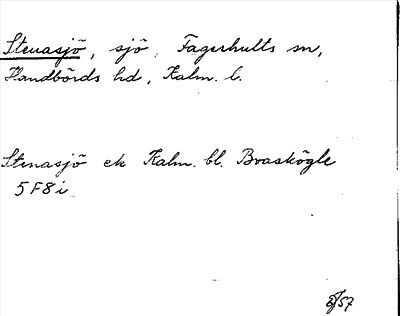 Stenasjö, sjö, Fagerhults sn,
Handbörds hd, Kalm. l.
Stenasjö ek Kalm. bl. Bvaskögle
5F8i
/57